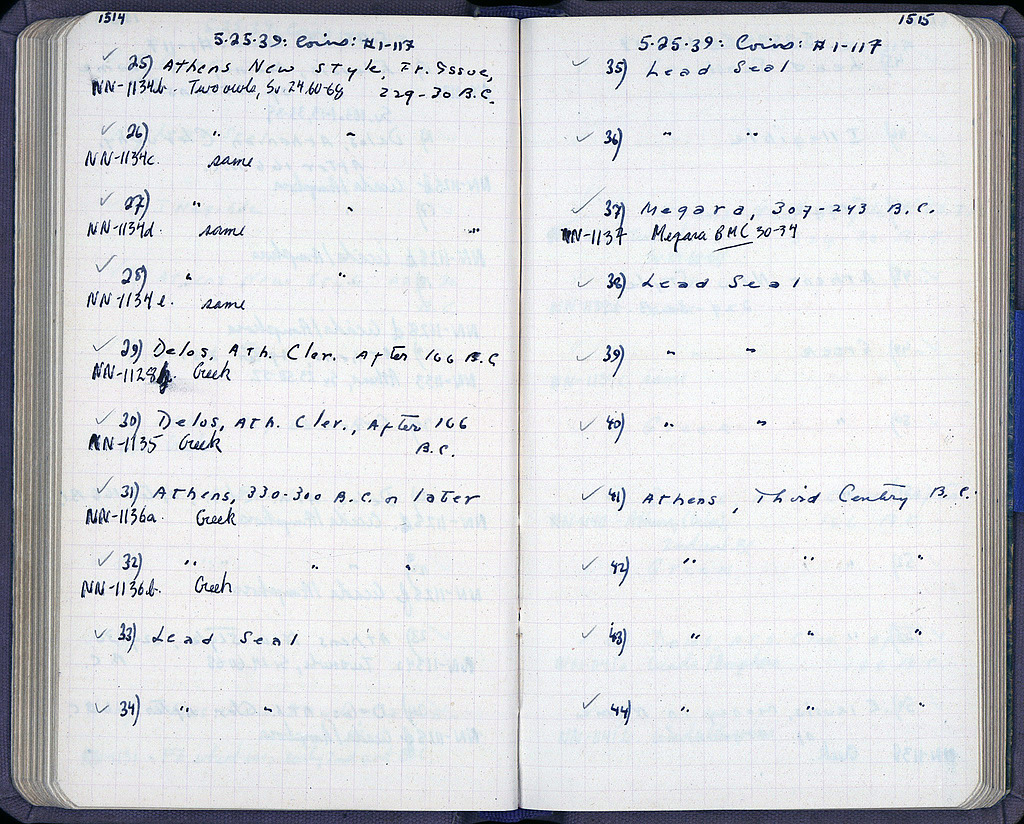 1514
5·25·39: Coins: #1-117
✓ 25) Athens New Style, Fr. Issue,
NN-1134b. Two owls, Sv. 24.60-68 229-30 B.C.
✓ 26) " "
NN-1134c. same
✓ 27) " "
NN-1134d. same "
✓ 28) " "
NN-1134e. same
✓ 29) Delos, Ath. Cler. After 166 B.C
NN-1128h. Greek
✓ 30) Delos, Ath. Cler., After 166
NN-1135 Greek B.C.
✓ 31) Athens, 330-300 B.C. or later
NN-1136a. Greek
✓ 32) " " "
NN-1136b. Greek
✓ 33) Lead Seal
✓ 34) " "
1515
5·25·39: Coins: #1-117
✓ 35) Lead Seal
✓ 36) " "
✓ 37) Megara, 307-243 B.C.
NN-1137 Megara BMC 30-34
✓ 38) Lead Seal
✓ 39) " "
✓ 40) " "
✓ 41) Athens, Third Century B.C.
✓ 42) " " "
✓ 43) " " "
✓ 44) " " "